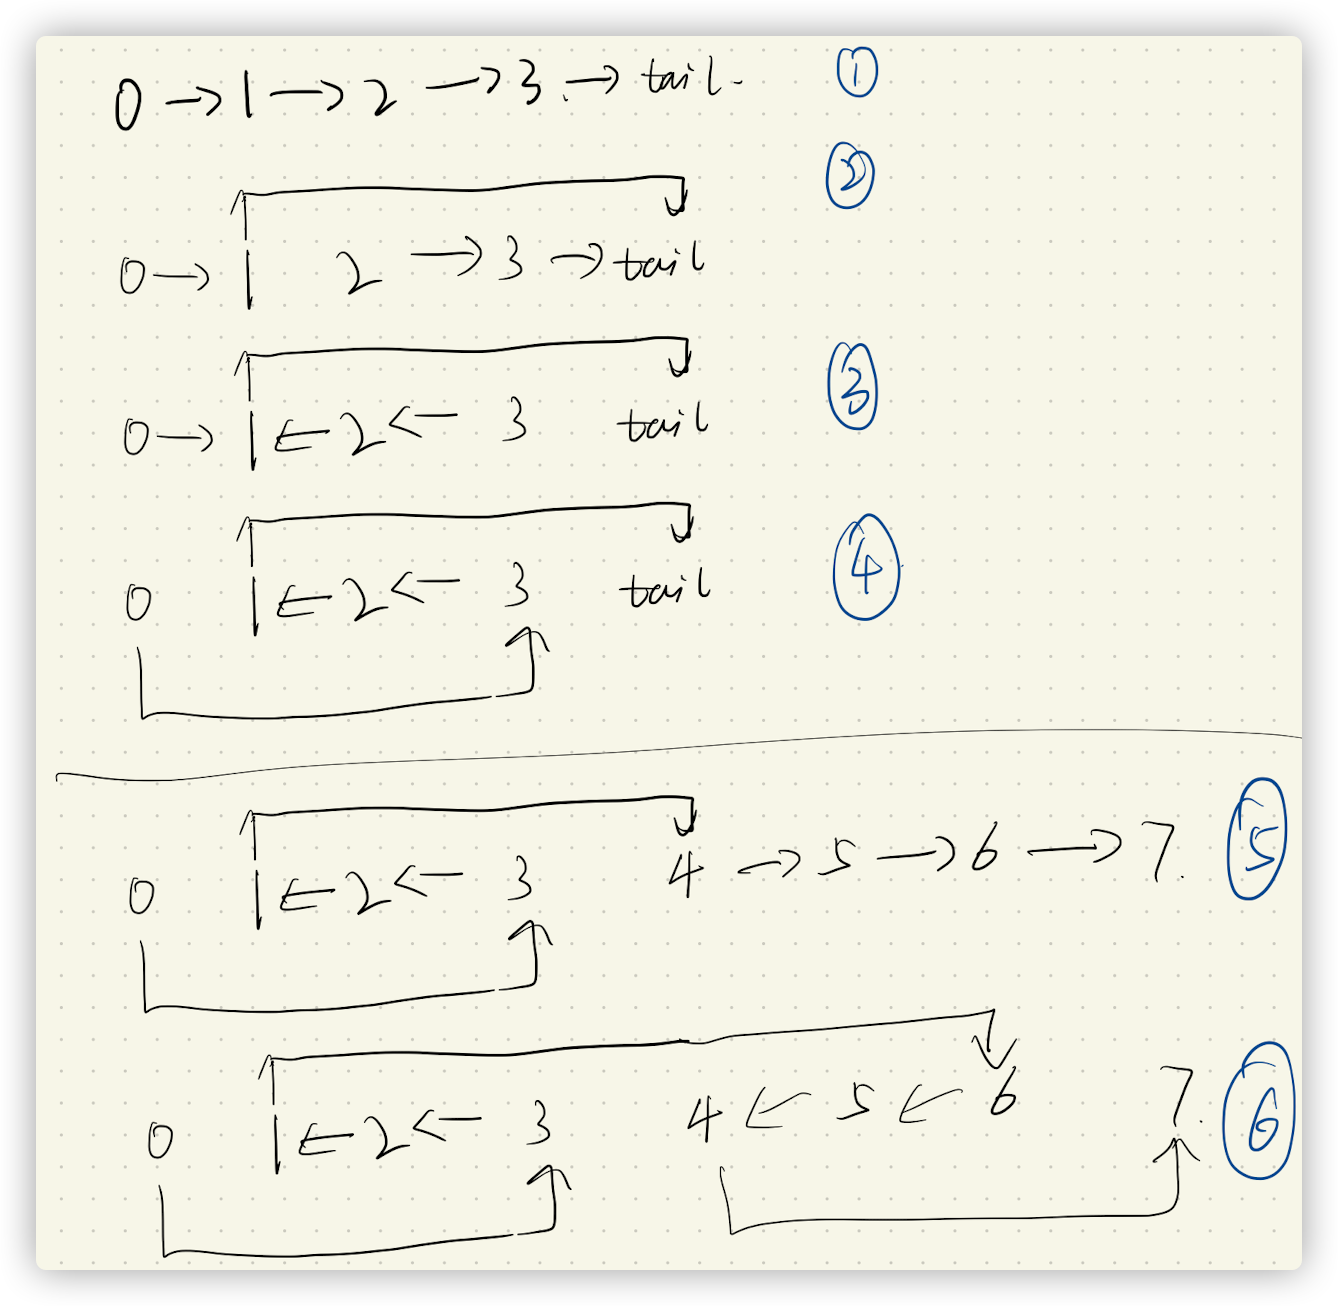 0 → 1 → 2 → 3 → tail ①
②
0 → 1 2 → 3 → tail
0 → 1 ← 2 ← 3 tail ③
0 1 ← 2 ← 3 tail ④
0 1 ← 2 ← 3 4 → 5 → 6 → 7 ⑤
0 1 ← 2 ← 3 4 ← 5 ← 6 7 ⑥